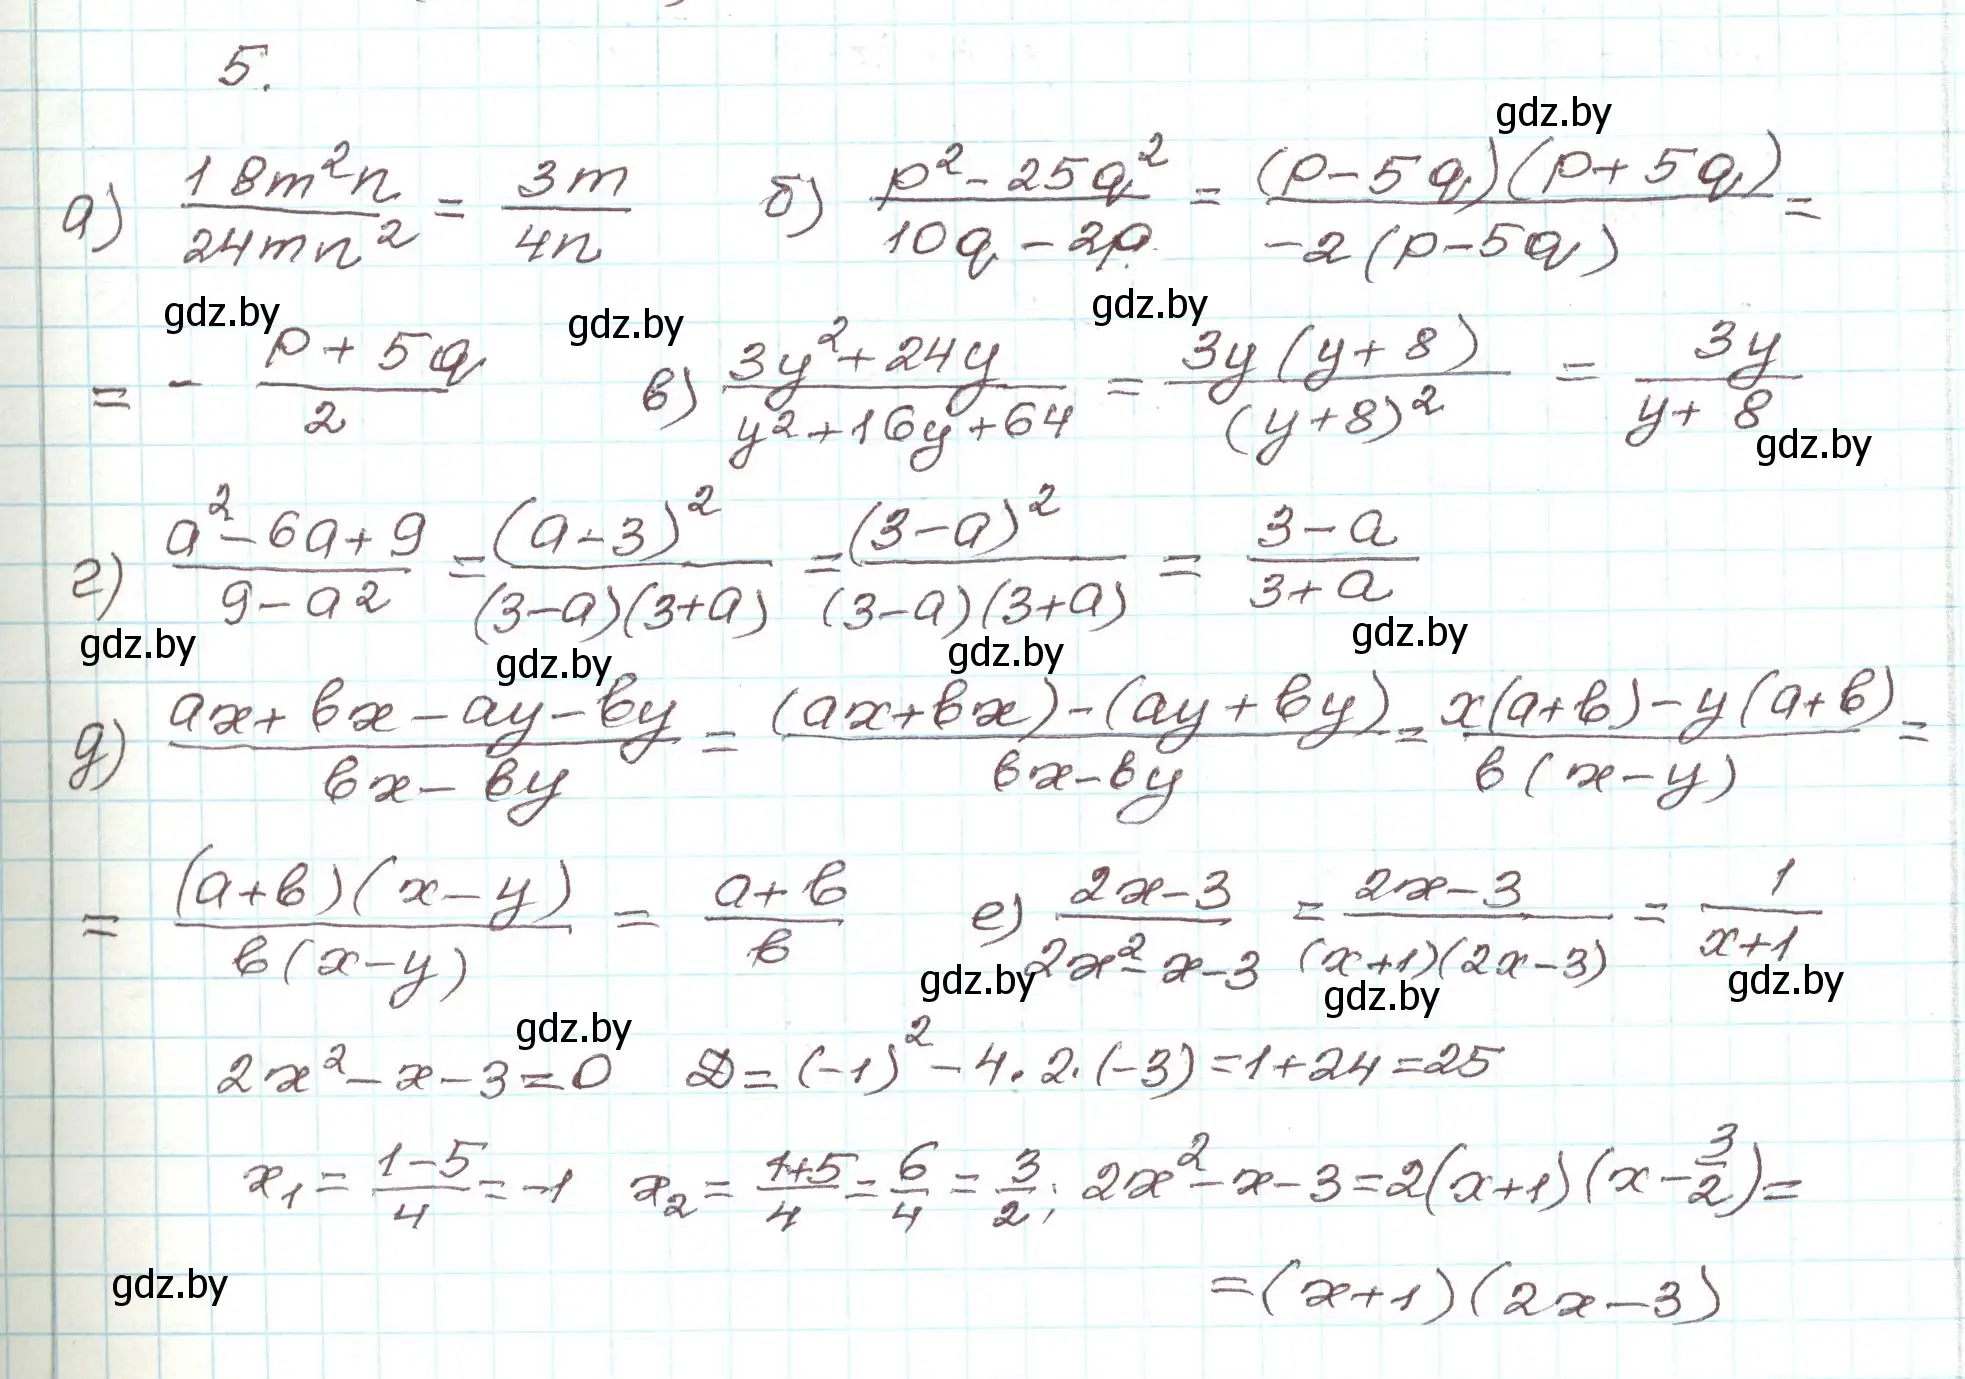 5.
gdz.by
а) 18m²n/24mn² = 3m/4n б) p²-25q²/10q-2p = (p-5q)(p+5q)/-2(p-5q) =
gdz.by gdz.by gdz.by
= - p+5q/2 в) 3y²+24y/y²+16y+64 = 3y(y+8)/(y+8)² = 3y/y+8
gdz.by
г) a²-6a+9/9-a² = (a-3)²/(3-a)(3+a) = (3-a)²/(3-a)(3+a) = 3-a/3+a
gdz.by gdz.by gdz.by gdz.by
д) ax+bx-ay-by/bx-by = (ax+bx)-(ay+by)/bx-by = x(a+b)-y(a+b)/b(x-y) =
= (a+b)(x-y)/b(x-y) = a+b/b е) 2x-3/2x²-x-3 = 2x-3/(x+1)(2x-3) = 1/x+1
gdz.by gdz.by gdz.by
gdz.by
2x²-x-3=0 D=(-1)²-4·2·(-3)=1+24=25
x₁ = 1-5/4 = -1 x₂ = 1+5/4 = 6/4 = 3/2; 2x²-x-3=2(x+1)(x-3/2)=
gdz.by
=(x+1)(2x-3)